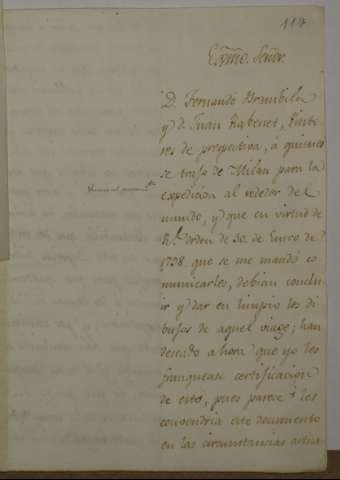 117
Exmo. Señor.
D. Fernando Brambila
y D. Juan Rabenet, Pinto
res de perspectiva, á quienes
se trajo de Milan para la
expedicion al rededor del
mundo, y que en virtud de
Rl. orden de 30. de Enero de
1798. que se me mandó co
municarles, debian conclu
ir y dar en limpio los di
bujos de aquel viage; han
deseado ahora que yo les
franquease certificacion
de esto, pues parece q. les
convendria este documento
en las circunstancias actua